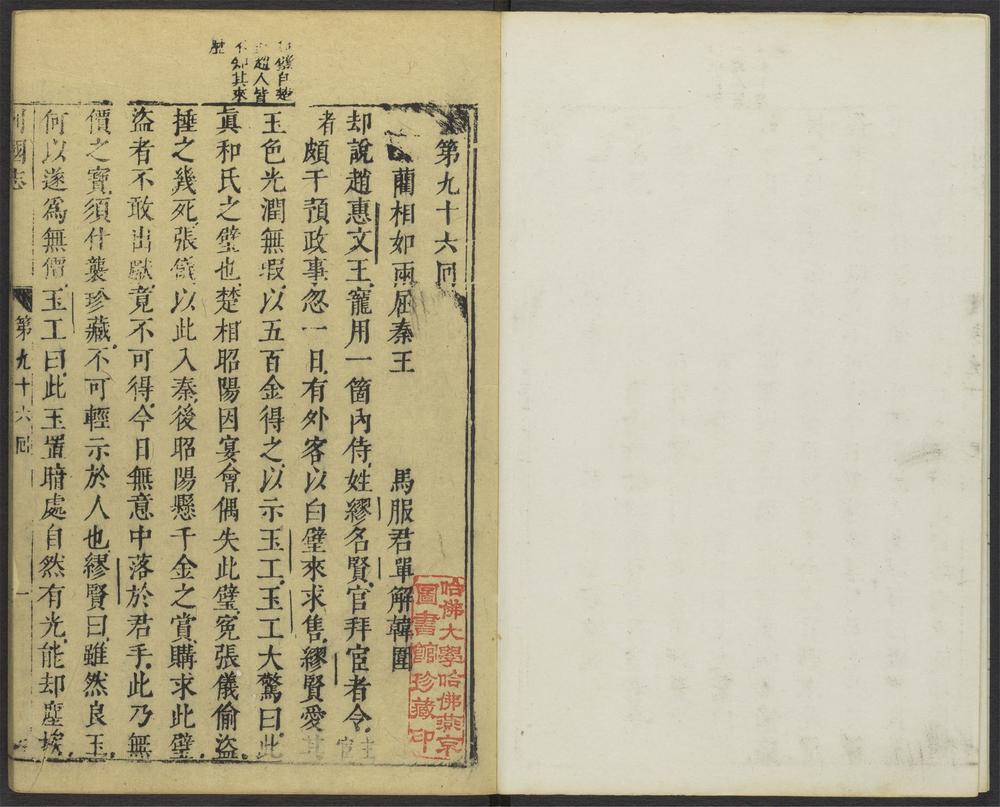 第九十六回
藺相如兩屈秦王 馬服君單解韓圍
却說趙惠文王寵用一箇內侍姓繆名賢官拜宦者令主宦
者頗干預政事忽一日有外客以白璧來求售繆賢愛其
玉色光潤無瑕以五百金得之以示玉工玉工大驚曰此
眞和氏之璧也楚相昭陽因宴會偶失此璧寃張儀偷盜
捶之幾死張儀以此入秦後昭陽懸千金之賞購求此璧
盜者不敢出獻竟不可得今日無意中落於君手此乃無
價之寶須什襲珍藏不可輕示於人也繆賢曰雖然良玉
何以遂爲無價玉工曰此玉置暗處自然有光能却塵埃
國志 第九十六回 一
自楚
趙人皆
不知其來
歷
哈佛大學哈佛燕京
圖書館珍藏印